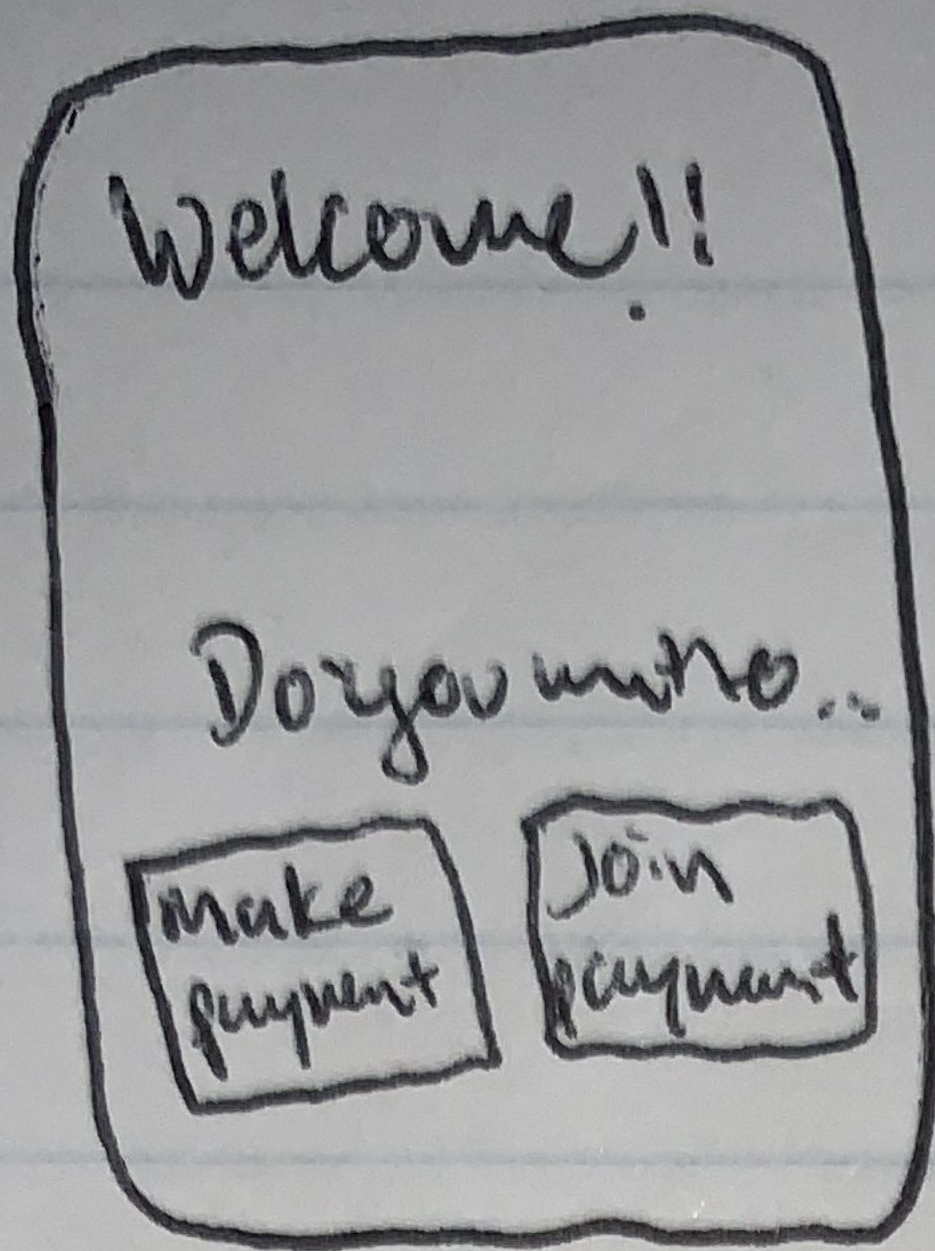 Welcome!!
Do you want to..
Make
payment
Join
payment